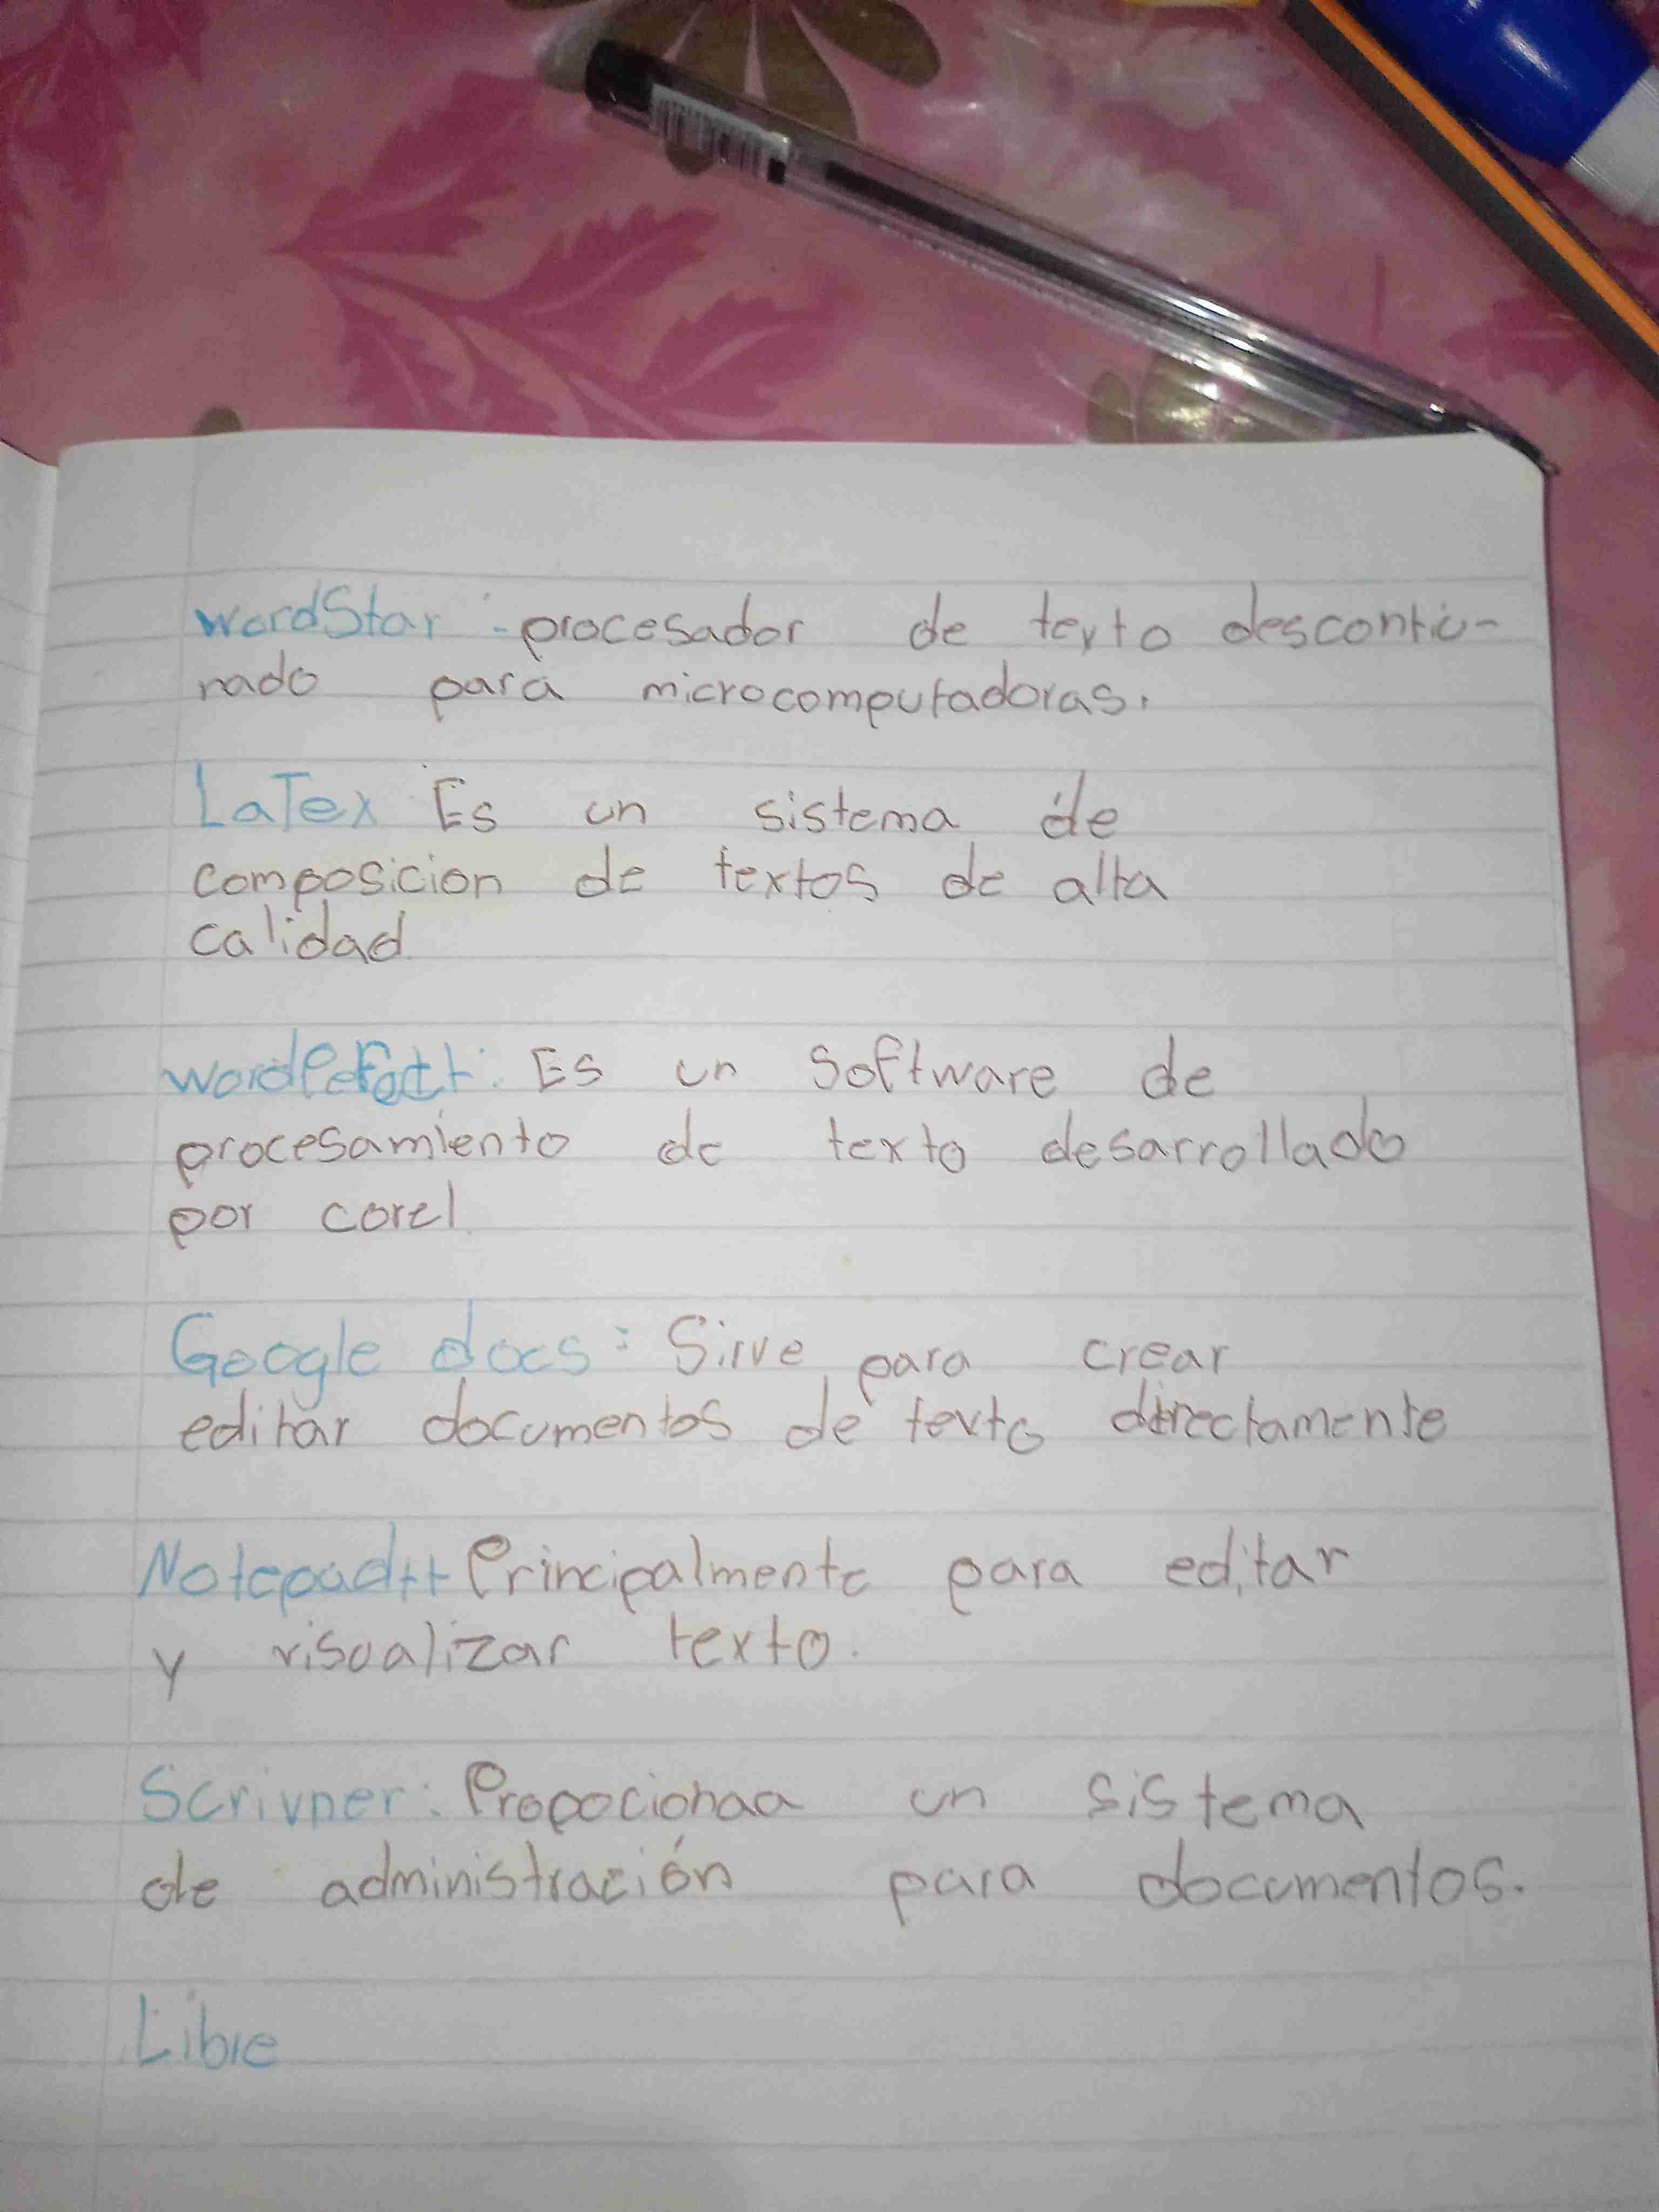 wordStar: procesador de texto descontic-
nado para microcomputadoras.
LaTex Es un sistema de
composicion de textos de alta
calidad.
wordPerfect: Es un Software de
procesamiento de texto desarrollado
por corel
Google docs: Sirve para crear
editar documentos de texto directamente
Notepad++ Principalmente para editar
y visualizar texto.
Scrivner: Propocionaa un sistema
de administración para documentos.
Libre